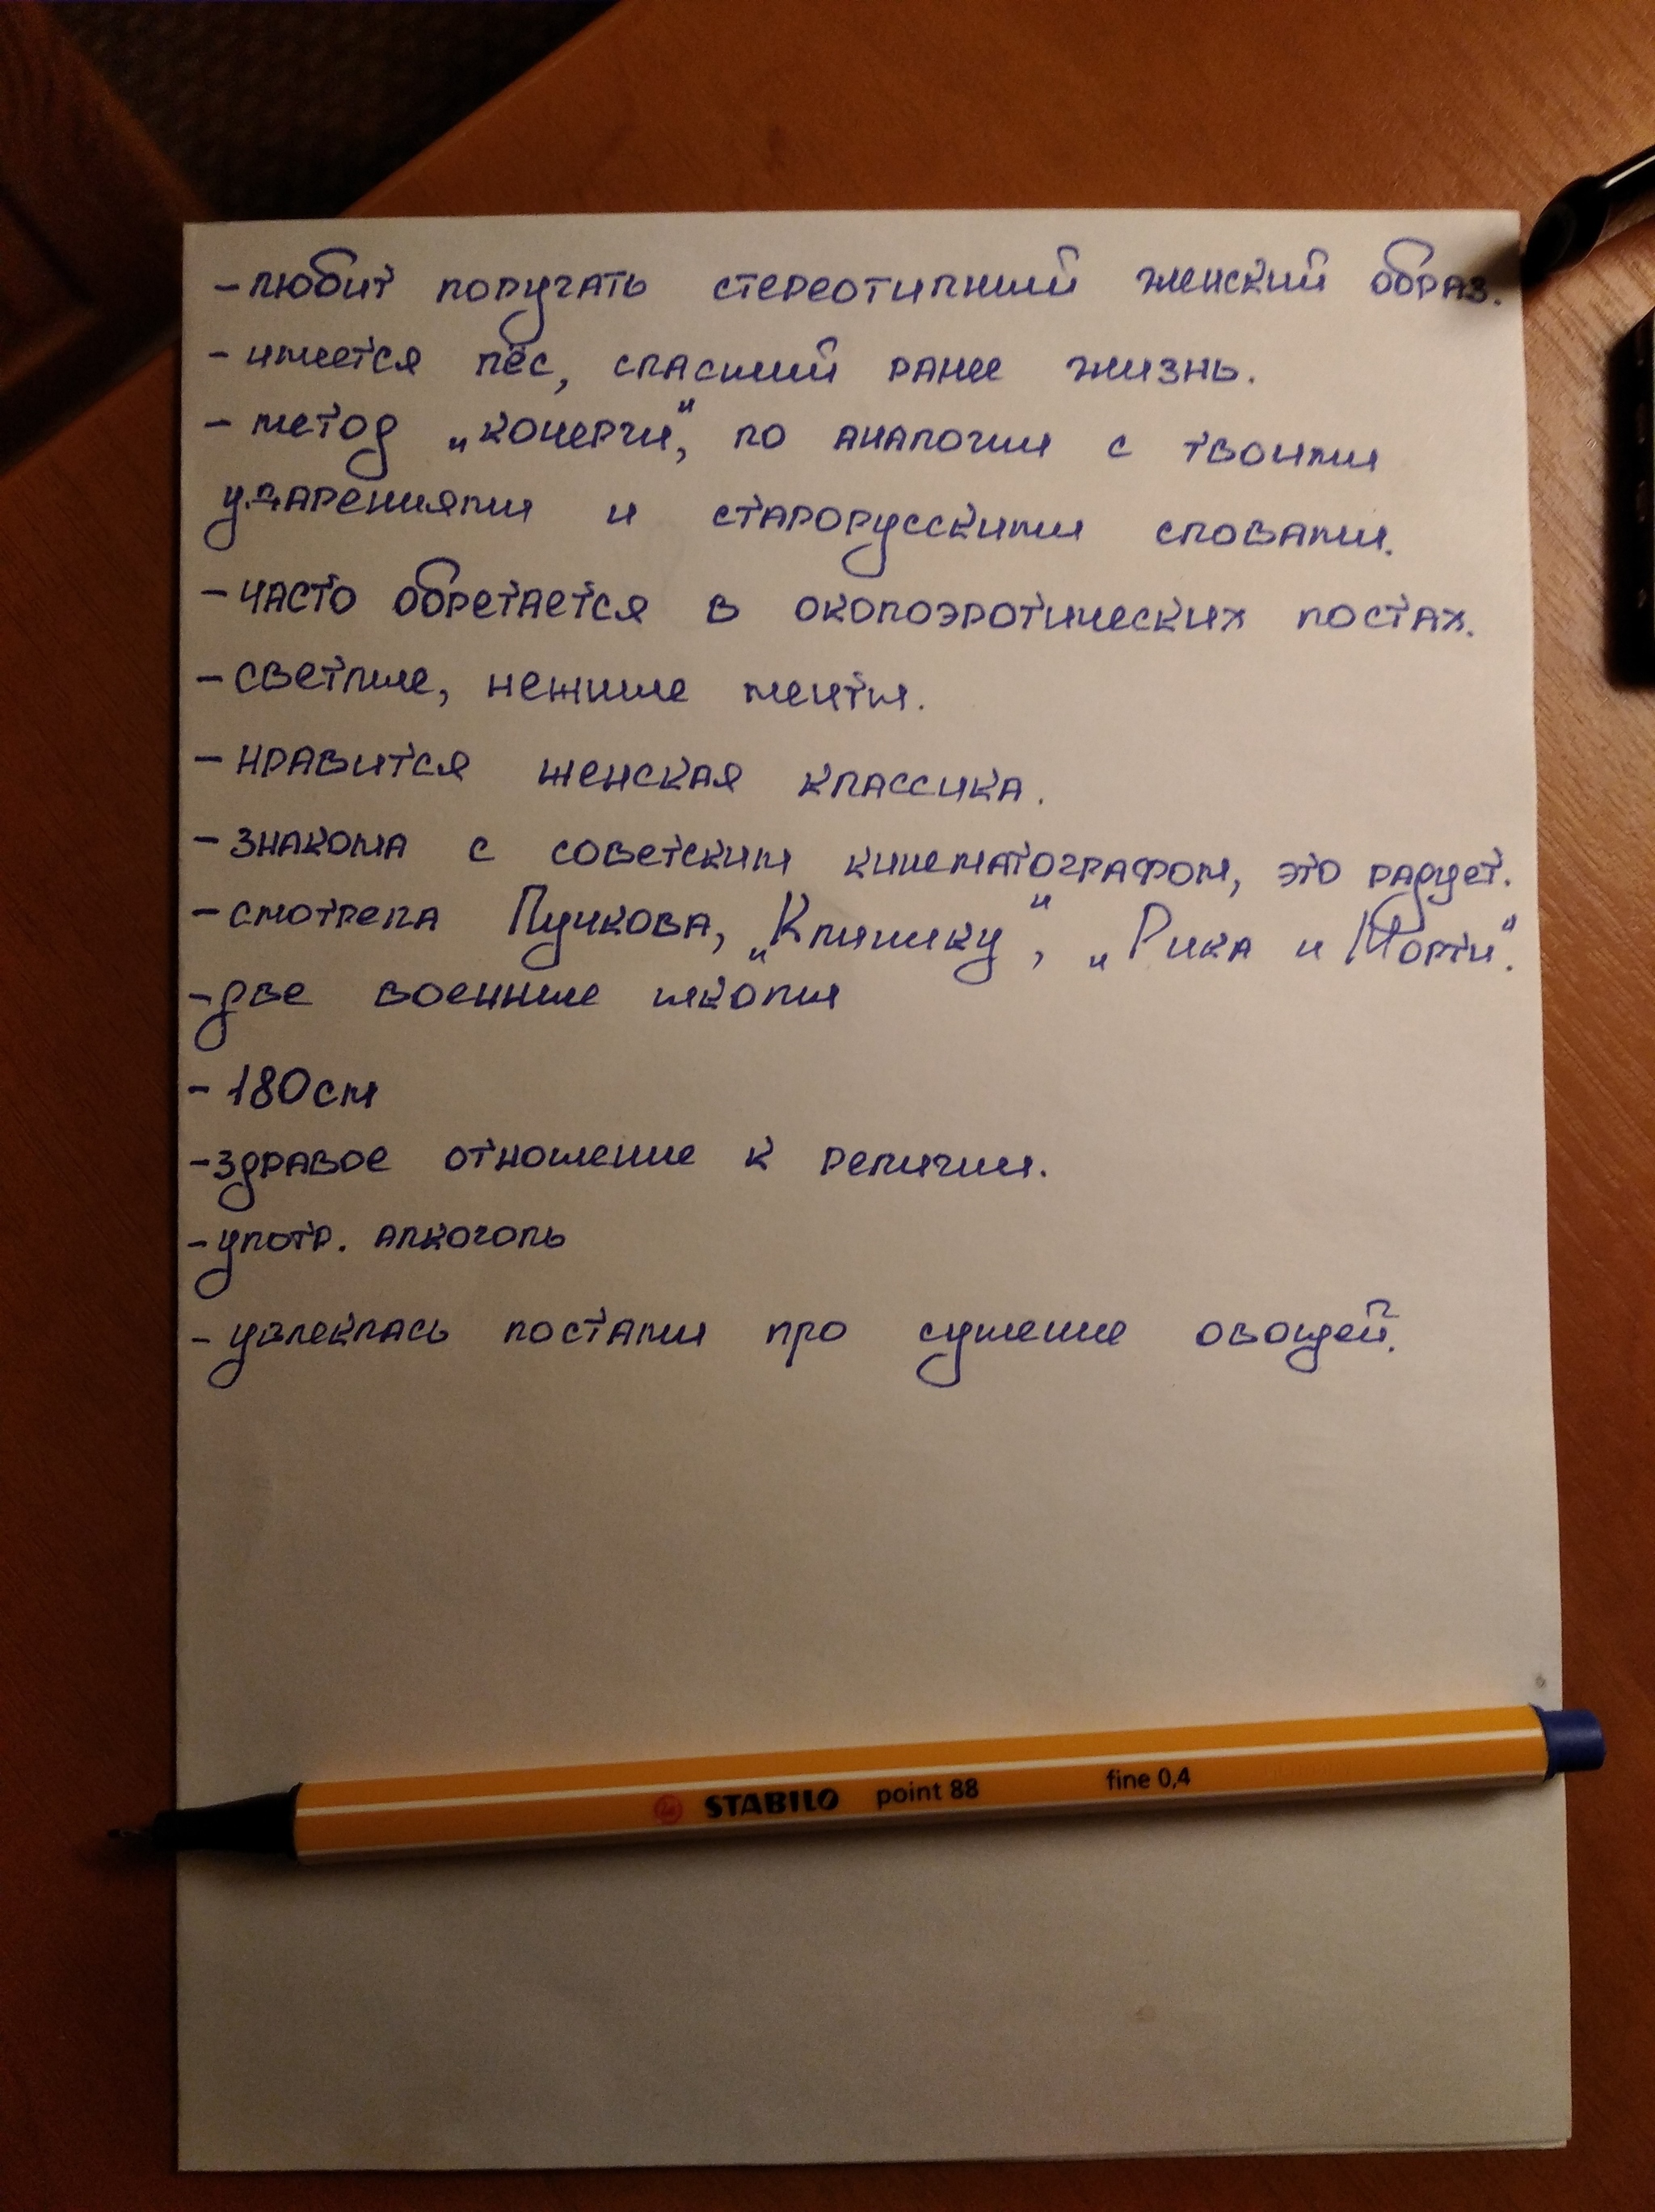 - любит поругать стереотипный женский образ.
- имеется пёс, спасший ранее жизнь.
- метод „конерги“, по аналогии с твоими
ударениями и старорусскими словами.
- часто обретается в околоэротических постах.
- светлые, нежные мечты.
- нравится женская классика.
- знакома с советским кинематографом, это радует.
- смотрела Пучкова, „Клинику“, „Рика и Морти“.
- две военные школы
- 180см
- здравое отношение к религии.
- употр. алкоголь
- увлеклась постами про сушение овощей.
STABILO point 88 fine 0,4